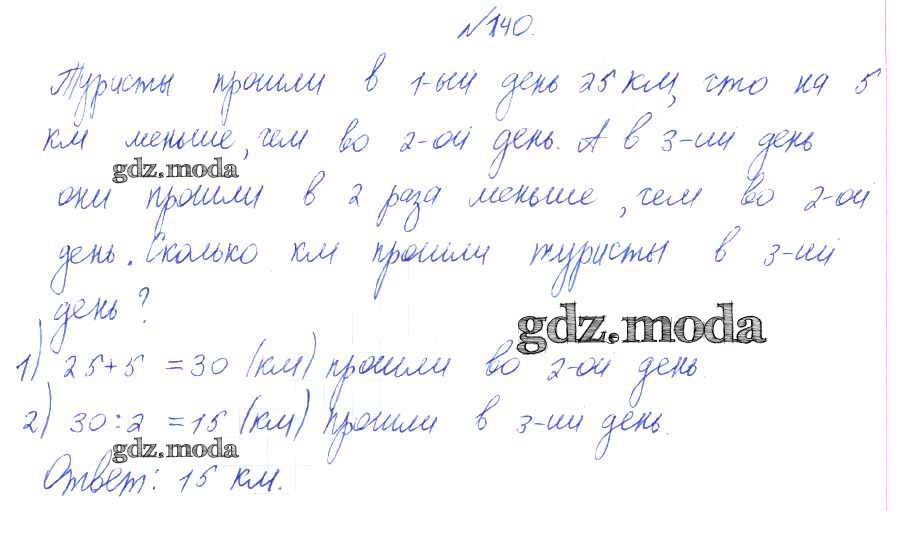 №140.
Туристы прошли в 1-ый день 25 км, что на 5
км меньше, чем во 2-ой день. А в 3-ий день
gdz.moda
они прошли в 2 раза меньше, чем во 2-ой
день. Сколько км прошли туристы в 3-ий
день?
gdz.moda
1) 25+5 =30 (км) прошли во 2-ой день.
2) 30:2 =15 (км) прошли в 3-ий день.
gdz.moda
Ответ: 15 км.